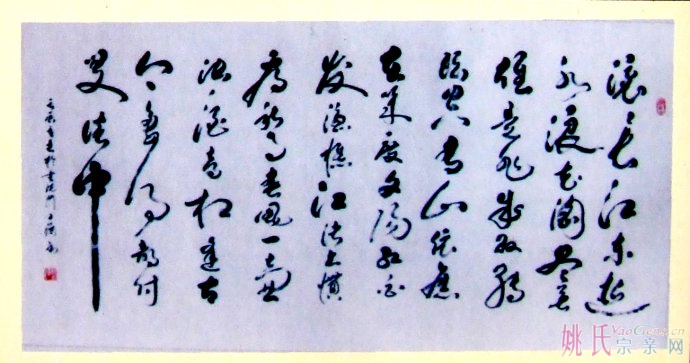 滚滚长江东逝
水浪花淘尽英
雄是非成败转
头空青山依旧
在几度夕阳红白
发渔樵江渚上惯
看秋月春风一壶
浊酒喜相逢古
今多少事都付
笑谈中
姚氏宗亲网